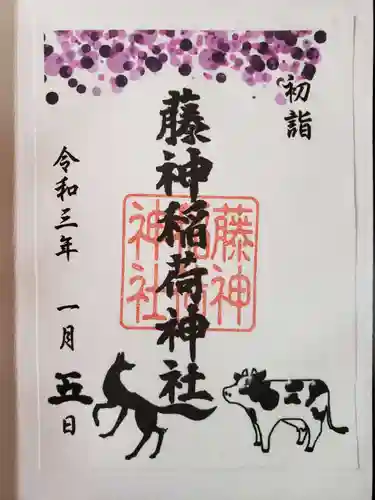 初詣
藤神稲荷神社
藤神稲荷神社
令和三年 一月五日